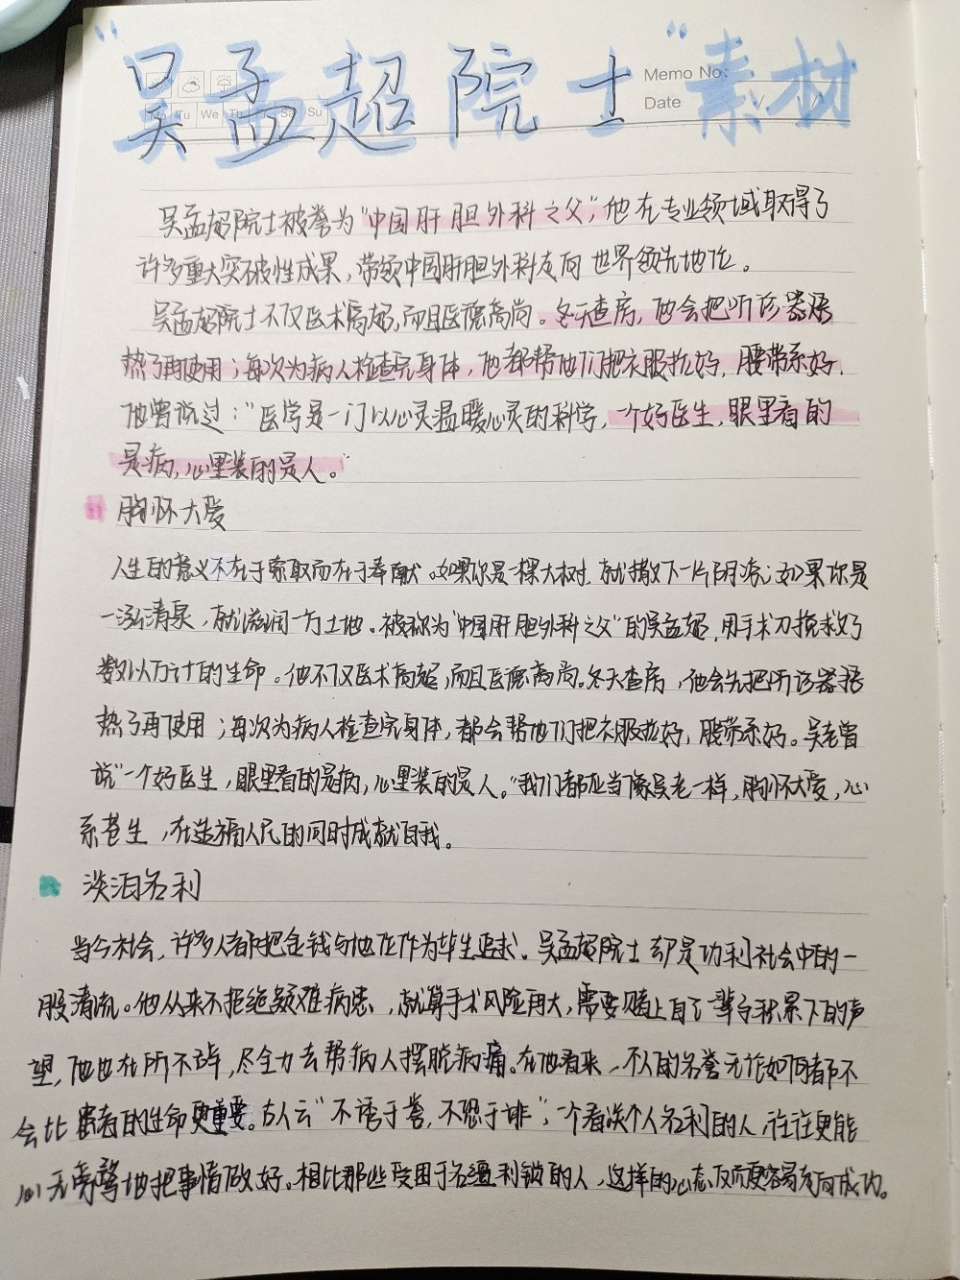 "吴孟超院士"素材
Memo No:
Date / /
Mo Tu We Th Fr Sa Su
吴孟超院士被誉为"中国肝胆外科之父",他在专业领域取得了
许多重大突破性成果,带领中国肝胆外科走向世界领先地位。
吴孟超院士不仅医术高超,而且医德高尚。冬天查房,他会把听诊器捂
热了再使用;每次为病人检查完身体,他都帮他们把衣服拉好,腰带系好.
他曾说过:"医学是一门以心灵温暖心灵的科学,一个好医生,眼里看的
是病,心里装的是人。"
胸怀大爱
人生的意义不在于索取而在于奉献。如果你是一棵大树,就撒下一片阴凉;如果你是
一泓清泉,就滋润一方土地。被称为"中国肝胆外科之父"的吴孟超,用手术刀挽救了
数以万计的生命。他不仅医术高超,而且医德高尚。冬天查房,他会先把听诊器捂
热了再使用;每次为病人检查完身体,都会帮他们把衣服拉好,腰带系好。吴老曾
说"一个好医生,眼里看的是病,心里装的是人。"我们都应当像吴老一样,胸怀大爱,心
系苍生,在造福人民的同时成就自我。
淡泊名利
当今社会,许多人都把金钱与地位作为毕生追求。吴孟超院士却是功利社会中的一
股清流。他从来不拒绝疑难病患,就算手术风险再大,需要赌上自己一辈子积累下的声
望,他也在所不辞,尽全力去帮病人摆脱病痛。在他看来,个人的名誉无论如何都不
会比患者的生命更重要。古人云"不诱于誉,不恐于诽";一个看淡个人名利的人,往往更能
心无旁骛地把事情做好。相比那些受困于名缰利锁的人,这样的心态反而更容易走向成功。